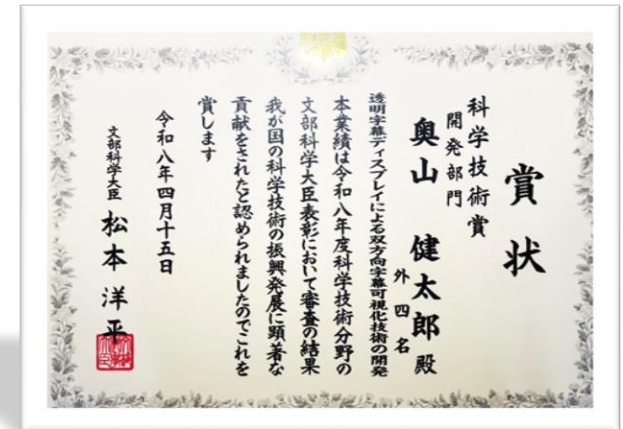 賞状
科学技術賞
開発部門
奥山 健太郎 殿
外四名
透明字幕ディスプレイによる双方向字幕可視化技術の開発
本業績は令和八年度科学技術分野の
文部科学大臣表彰において審査の結果
我が国の科学技術の振興発展に顕著な
貢献をされたと認められましたのでこれを
賞します
令和八年四月十五日
文部科学大臣 松本洋平